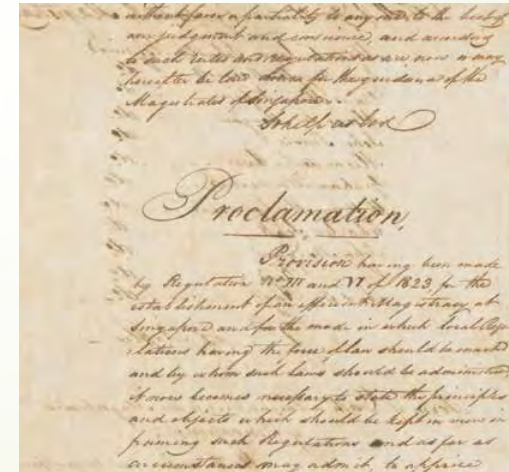 without favor or partiality to any one to the best of
my judgement and conscience, and according
to such rules and regulations as are now or may
hereafter be laid down for the guidance of the
Magistrates of Singapore.
So help us God
Proclamation,
Provision having been made
by Regulation No III and VI of 1823 for the
establishment of an efficient Magistracy at
Singapore and for the mode in which Local Regu
lations having the force of Law should be made
and by whom such laws should be administered
it now becomes necessary to state the principles
and objects which should be kept in view in
framing such Regulations and as far as
circumstances may admit to apprize